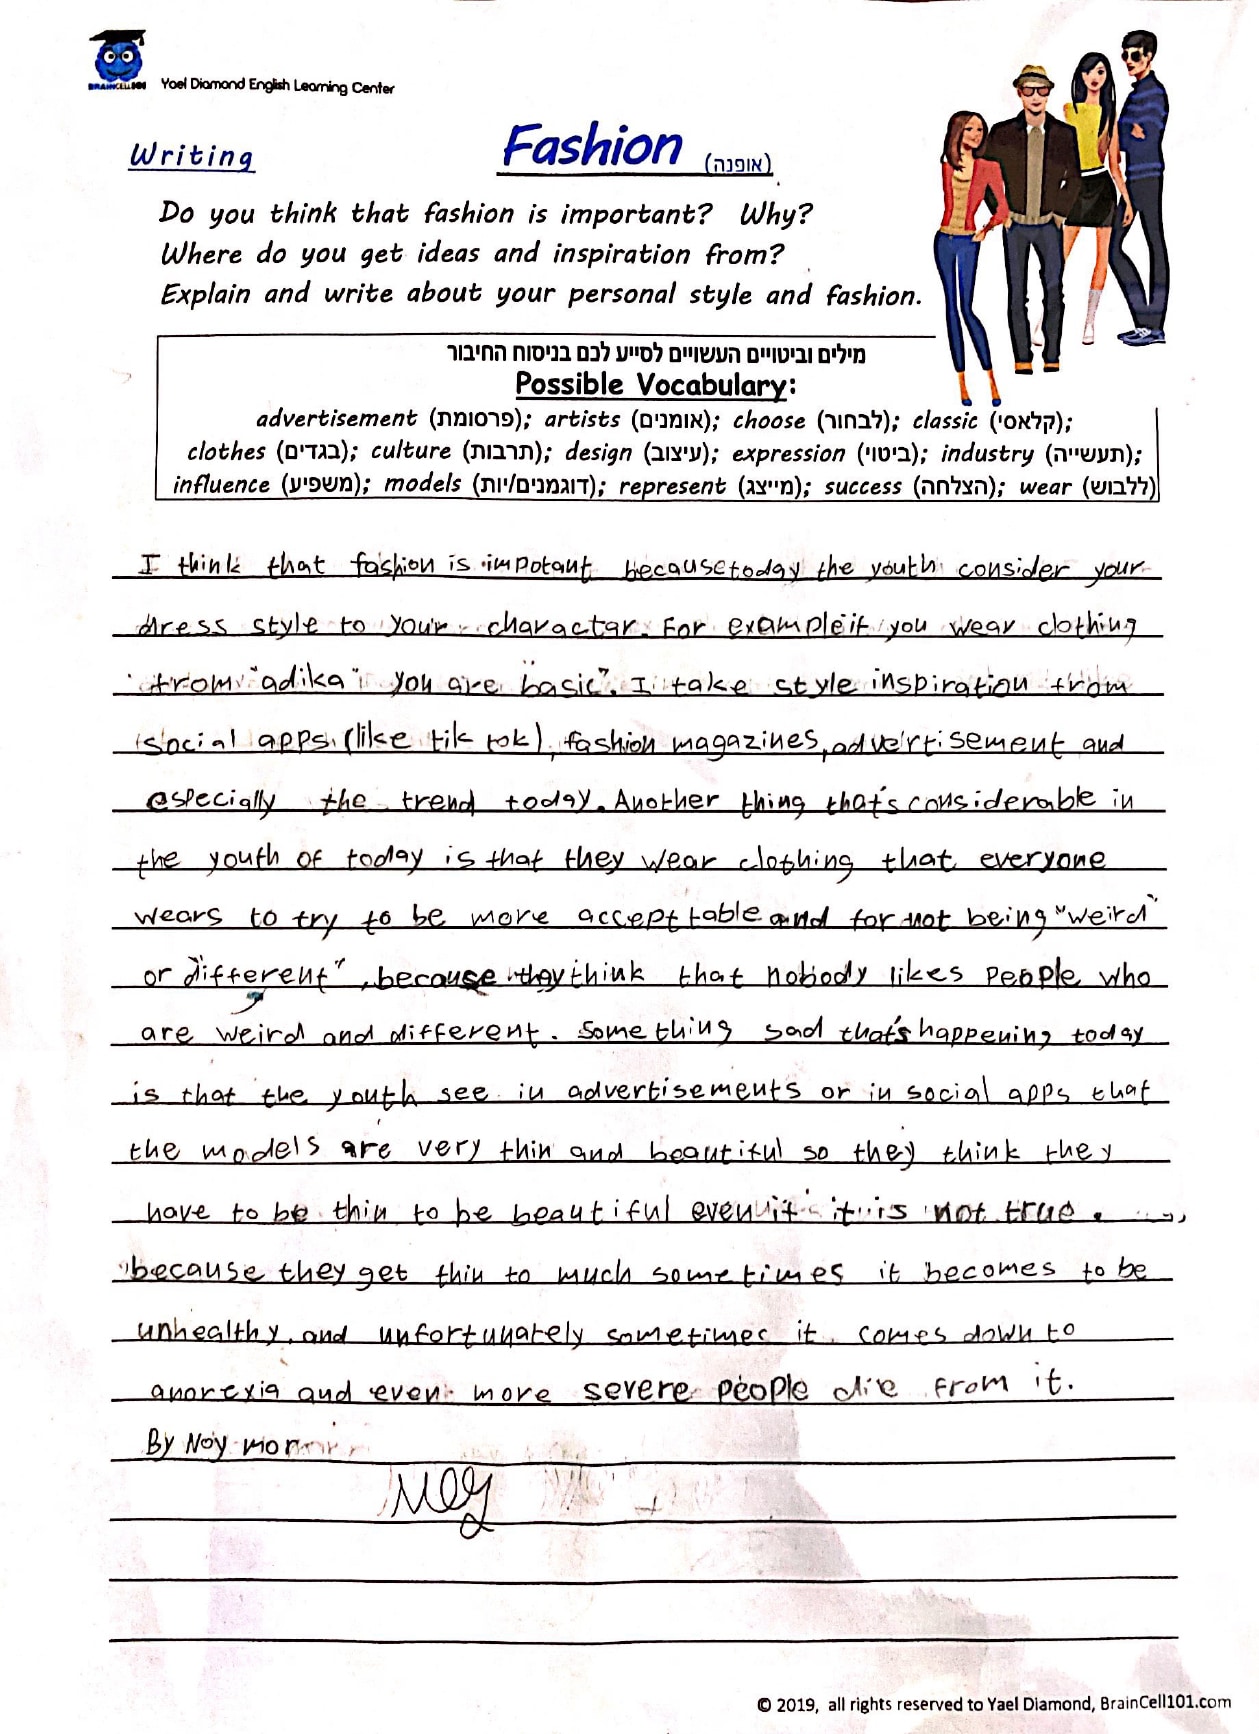 BRAINCELL101 Yael Diamond English Learning Center
Writing
Fashion (אופנה)
Do you think that fashion is important? Why?
Where do you get ideas and inspiration from?
Explain and write about your personal style and fashion.
מילים וביטויים העשויים לסייע לכם בניסוח החיבור
Possible Vocabulary:
advertisement (פרסומת); artists (אומנים); choose (לבחור); classic (קלאסי);
clothes (בגדים); culture (תרבות); design (עיצוב); expression (ביטוי); industry (תעשייה);
influence (משפיע); models (דוגמנים/יות); represent (מייצג); success (הצלחה); wear (ללבוש)
I think that fashion is impotant because today the youth consider your
dress style to your charactar. For example if you wear clothing
from "adika" you are basic". I take style inspiration from
social apps (like tik tok), fashion magazines, advertisement and
especially the trend today. Another thing that's considerable in
the youth of today is that they wear clothing that everyone
wears to try to be more accepttable and for not being "weird"
or different", because they think that nobody likes people who
are weird and different. Something sad that's happening today
is that the youth see in advertisements or in social apps that
the models are very thin and beautiful so they think they
have to be thin to be beautiful even if it is not true.
because they get thin to much sometimes it becomes to be
unhealthy, and unfortunately sometimes it comes down to
anorexia and even more severe people die from it.
By Noy mor
Noy
© 2019, all rights reserved to Yael Diamond, BrainCell101.com